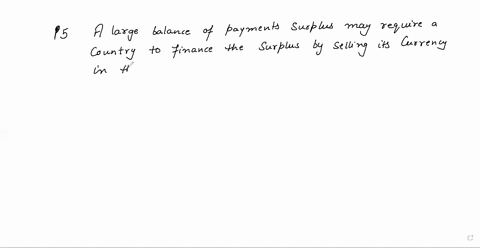 P5 A large balance of payments surplus may require a
Country to finance the Surplus by selling its Currency
in th